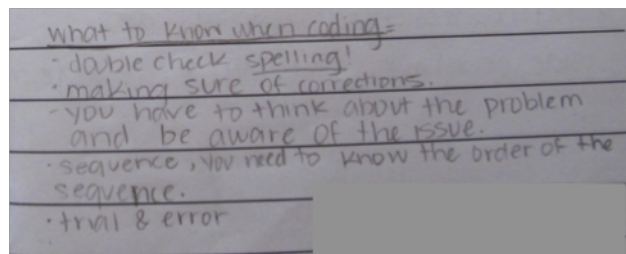 what to know when coding=
· double check spelling!
· making sure of corrections.
- you have to think about the problem
and be aware of the issue.
· sequence, you need to know the order of the
sequence.
· trial & error